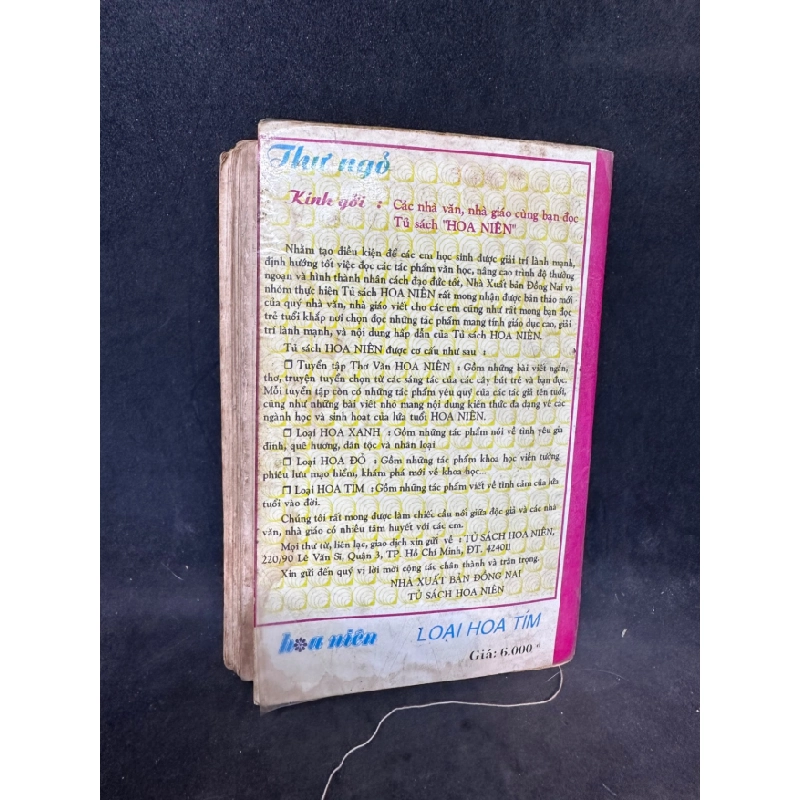 Thư ngỏ
Kính gởi : Các nhà văn, nhà giáo cùng bạn đọc
Tủ sách "HOA NIÊN"
Nhằm tạo điều kiện để các em học sinh được giải trí lành mạnh,
định hướng tốt việc đọc các tác phẩm văn học, nâng cao trình độ thưởng
ngoạn và hình thành nhân cách đạo đức tốt, Nhà Xuất bản Đồng Nai và
nhóm thực hiện Tủ sách HOA NIÊN rất mong nhận được bản thảo mới
của quý nhà văn, nhà giáo viết cho các em cũng như rất mong bạn đọc
trẻ tuổi khắp nơi chọn đọc những tác phẩm mang tính giáo dục cao, giải
trí lành mạnh, và nội dung hấp dẫn của Tủ sách HOA NIÊN.
Tủ sách HOA NIÊN được cơ cấu như sau :
☐ Tuyển tập Thơ Văn HOA NIÊN : Gồm những bài viết ngắn,
thơ, truyện tuyển chọn từ các sáng tác của các cây bút trẻ và bạn đọc.
Mỗi tuyển tập còn có những tác phẩm yêu quý của các tác giả tên tuổi,
cũng như những bài viết nhỏ mang nội dung kiến thức đa dạng về các
ngành học và sinh hoạt của lứa tuổi HOA NIÊN.
☐ Loại HOA XANH : Gồm những tác phẩm nói về tình yêu gia
đình, quê hương, dân tộc và nhân loại
☐ Loại HOA ĐỎ : Gồm những tác phẩm khoa học viễn tưởng
phiêu lưu mạo hiểm, khám phá mới về khoa học...
☐ Loại HOA TÍM : Gồm những tác phẩm viết về tình cảm của lứa
tuổi vào đời.
Chúng tôi rất mong được làm chiếc cầu nối giữa độc giả và các nhà
văn, nhà giáo có nhiều tâm huyết với các em.
Mọi thư từ, liên lạc, giao dịch xin gửi về : TỦ SÁCH HOA NIÊN,
220/90 Lê Văn Sĩ, Quận 3, TP. Hồ Chí Minh, ĐT. 424011
Xin gửi đến quý vị lời mời cộng tác chân thành và trân trọng.
NHÀ XUẤT BẢN ĐỒNG NAI
TỦ SÁCH HOA NIÊN
hoa niên LOẠI HOA TÍM
Giá: 6.000đ